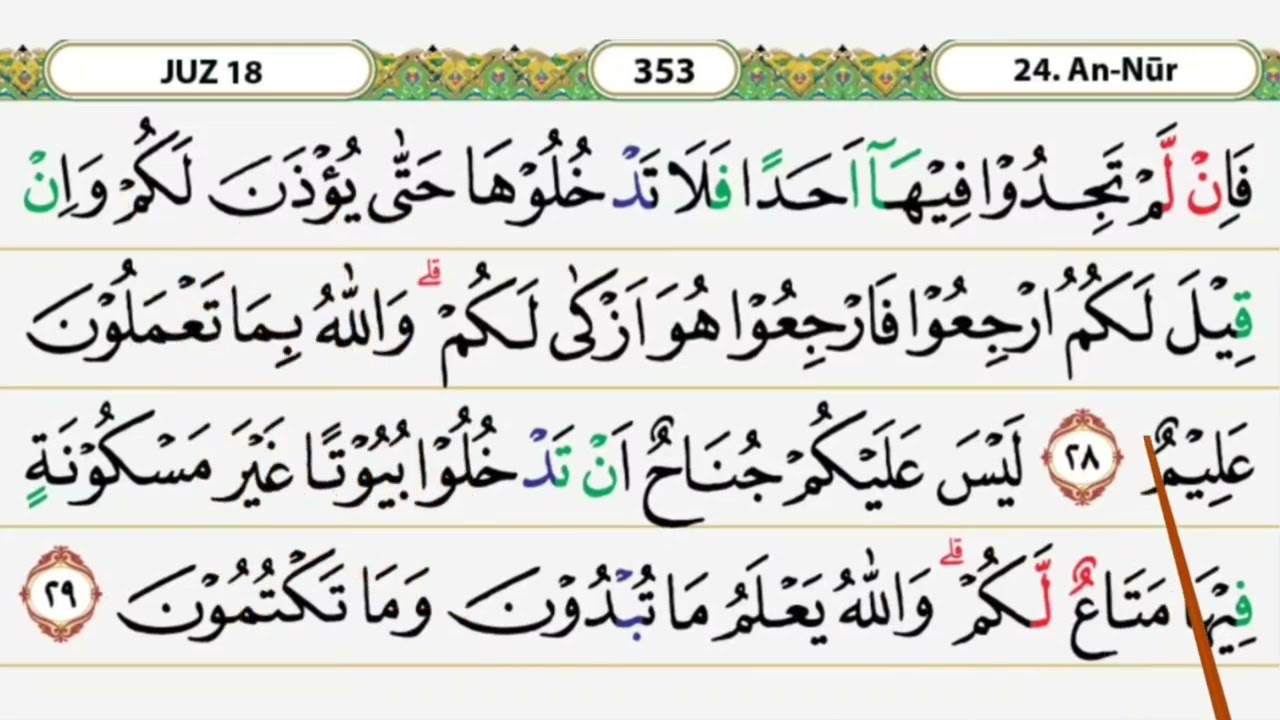 JUZ 18
353
24. An-Nūr
فَاِنْ لَّمْ تَجِدُوْا فِيْهَآ اَحَدًا فَلَا تَدْخُلُوْهَا حَتّٰى يُؤْذَنَ لَكُمْ وَاِنْ
قِيْلَ لَكُمُ ارْجِعُوْا فَارْجِعُوْا هُوَ اَزْكٰى لَكُمْ ۗ وَاللّٰهُ بِمَا تَعْمَلُوْنَ
عَلِيْمٌ ٢٨ لَيْسَ عَلَيْكُمْ جُنَاحٌ اَنْ تَدْخُلُوْا بُيُوْتًا غَيْرَ مَسْكُوْنَةٍ
فِيْهَا مَتَاعٌ لَّكُمْ ۗ وَاللّٰهُ يَعْلَمُ مَا تُبْدُوْنَ وَمَا تَكْتُمُوْنَ ٢٩